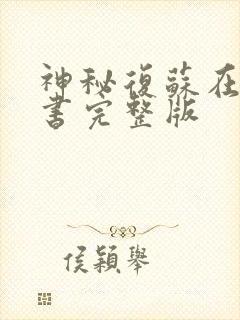 神秘復蘇在
書完整版
侯穎舉